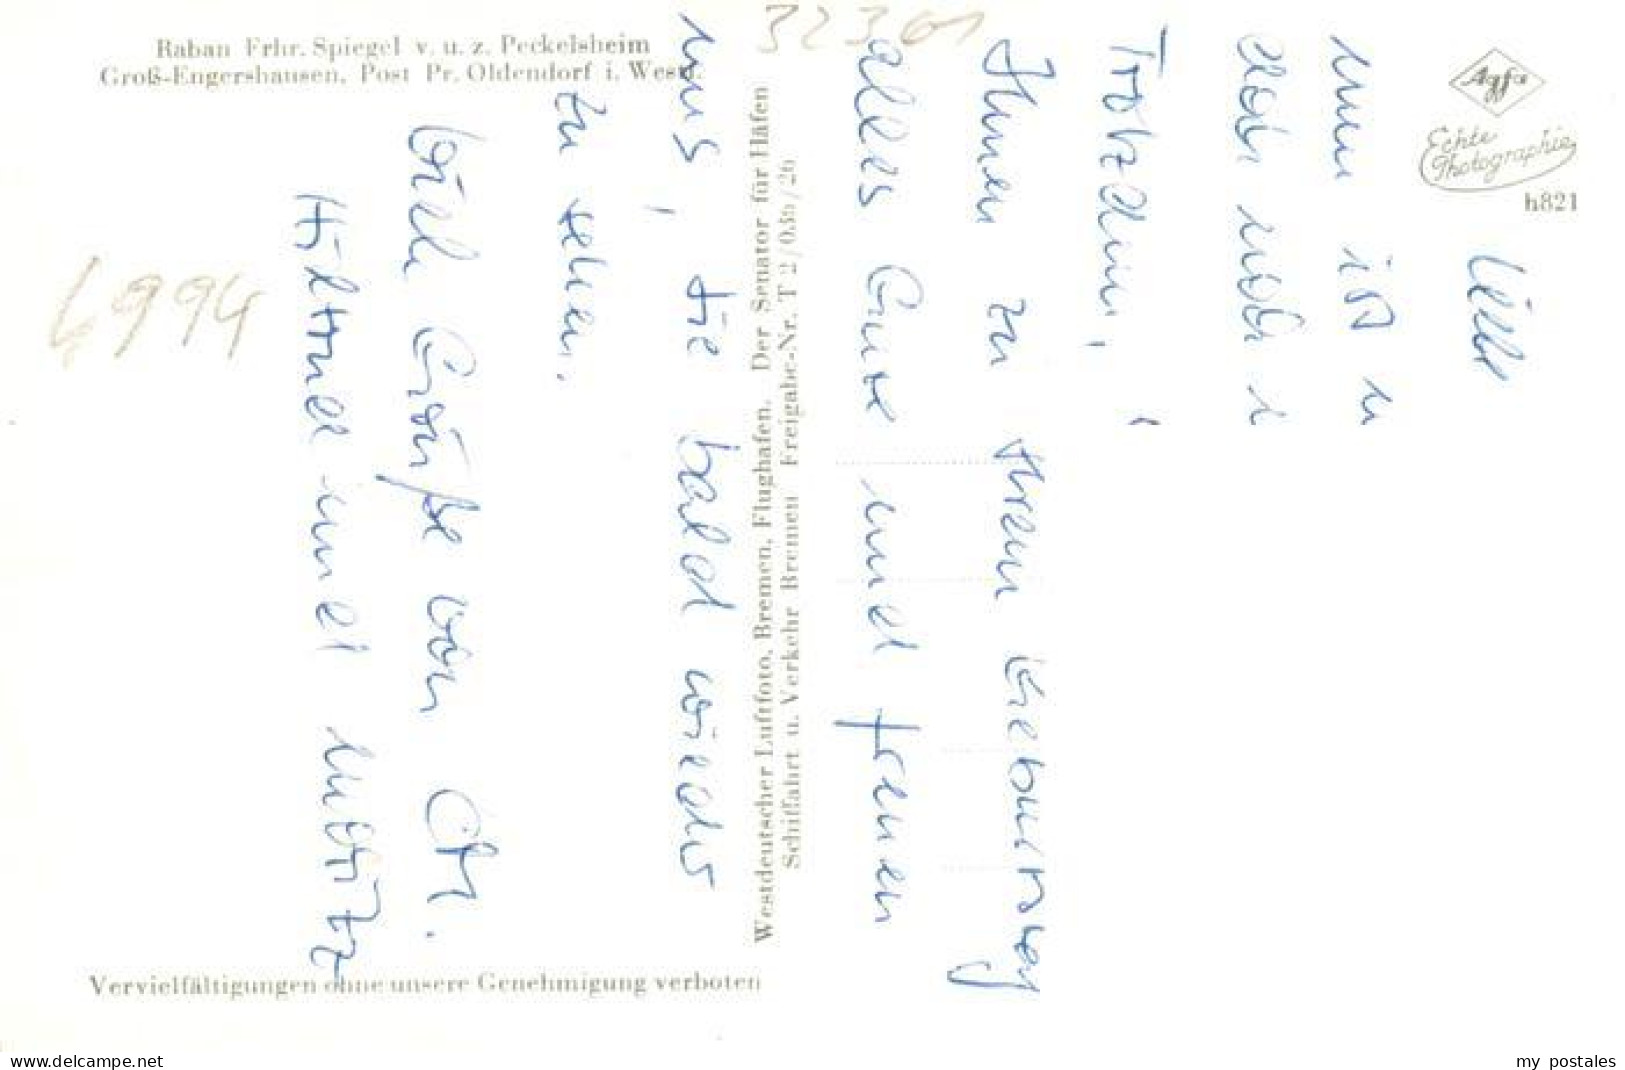 Raban Frhr. Spiegel v. u. z. Peckelsheim
Groß-Engershausen, Post Pr. Oldendorf i. Westf.
32361
Agfa
Echte
Photographie
h821
Westdeutscher Luftfoto, Bremen, Flughafen. Der Senator für Häfen
Schiffahrt u. Verkehr Bremen Freigabe-Nr. T 2/
Liebe
nun ist
doch noch
Trotzdem,
Ihnen zu Ihrem Geburtstag
alles Gute und freuen
uns, Sie bald wieder
zu sehen.
Viele Grüße von CM.
Hiltrud und Moritz
4994
Vervielfältigungen ohne unsere Genehmigung verboten
www.delcampe.net
my postales